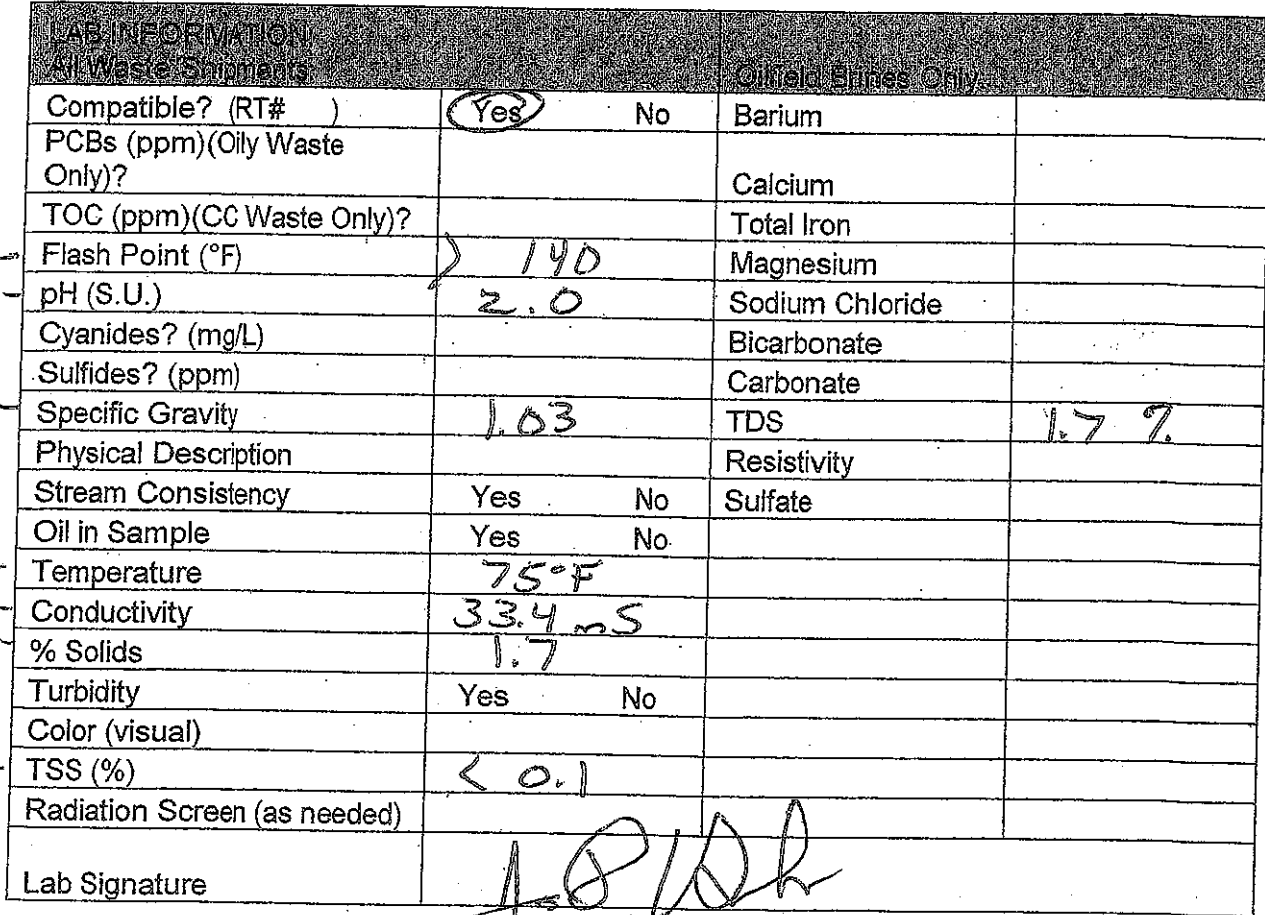 LAB INFORMATION
All Waste Shipments Oilfield Brines Only
Compatible? (RT# ) Yes No Barium
PCBs (ppm)(Oily Waste
Only)? Calcium
TOC (ppm)(CC Waste Only)? Total Iron
Flash Point (°F) > 140 Magnesium
pH (S.U.) 2.0 Sodium Chloride
Cyanides? (mg/L) Bicarbonate
Sulfides? (ppm) Carbonate
Specific Gravity 1.03 TDS 1.7 %
Physical Description Resistivity
Stream Consistency Yes No Sulfate
Oil in Sample Yes No
Temperature 75°F
Conductivity 33.4 mS
% Solids 1.7
Turbidity Yes No
Color (visual)
TSS (%) < 0.1
Radiation Screen (as needed)
Lab Signature